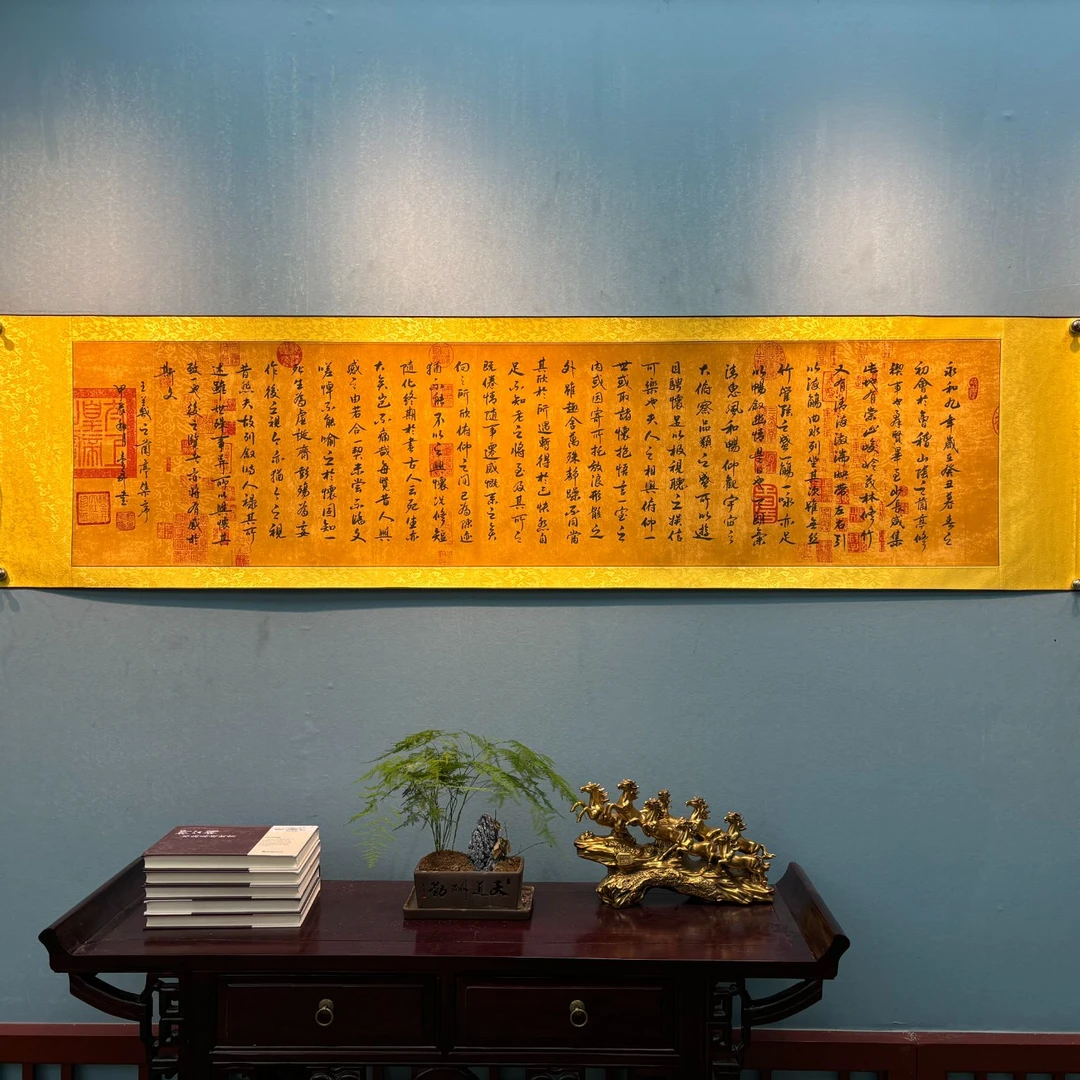 永和九年歲在癸丑暮春之
初會於會稽山陰之蘭亭修
禊事也群賢畢至少長咸集
此地有崇山峻嶺茂林修竹
又有清流激湍映帶左右引
以流觴曲水列坐其次雖無絲
竹管弦之盛一觴一詠亦足
以暢敘幽情是日也天朗氣
清惠風和暢仰觀宇宙之
大俯察品類之盛所以遊
目騁懷足以極視聽之娛信
可樂也夫人之相與俯仰一
世或取諸懷抱悟言一室之
內或因寄所托放浪形骸之
外雖趣舍萬殊靜躁不同當
其欣於所遇暫得於己快然自
足不知老之將至及其所之
既倦情隨事遷感慨系之矣
向之所欣俯仰之間已為陳迹
猶不能不以之興懷況修短
隨化終期於盡古人云死生亦
大矣豈不痛哉每覽昔人興
感之由若合一契未嘗不臨文
嗟悼不能喻之於懷固知一
死生為虛誕齊彭殤為妄
作後之視今亦猶今之視
昔悲夫故列敘時人錄其所
述雖世殊事異所以興懷其
致一也後之覽者亦將有感於
斯文
王羲之蘭亭集序
天道酬勤